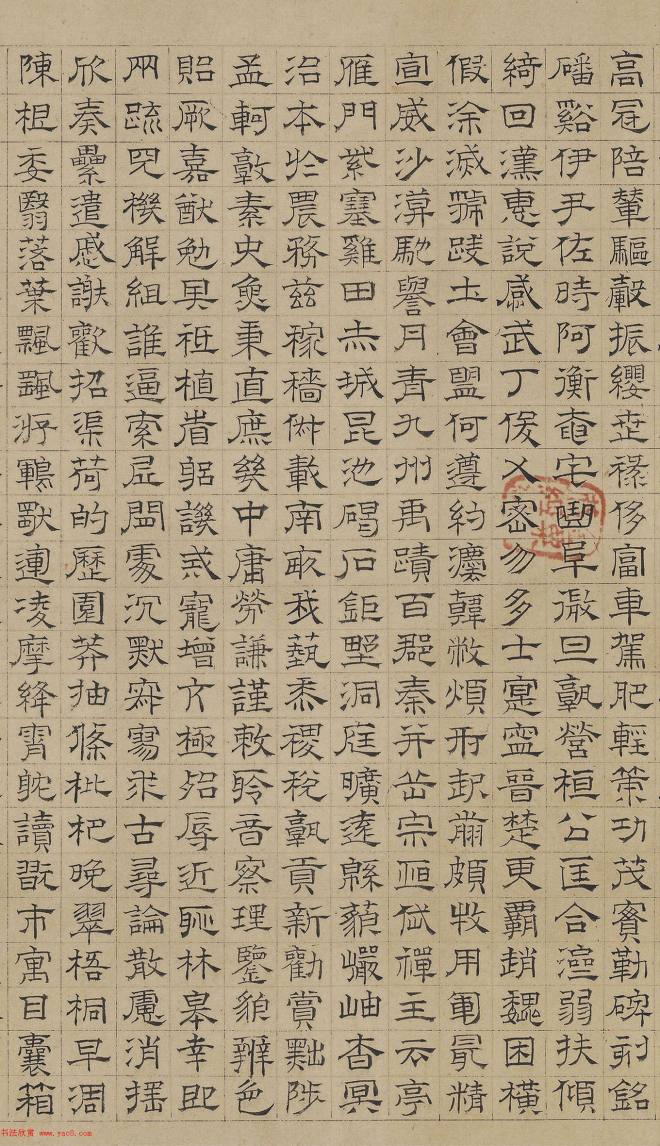 高冠陪輦驅轂振纓世祿侈富車駕肥輕策功茂實勒碑刻銘
磻谿伊尹佐時阿衡奄宅曲阜微旦孰營桓公匡合濟弱扶傾
綺回漢惠說感武丁俊乂密勿多士寔寧晉楚更霸趙魏困橫
假途滅虢踐土會盟何遵約法韓弊煩刑起翦頗牧用軍最精
宣威沙漠馳譽丹青九州禹蹟百郡秦并岳宗恒岱禪主云亭
雁門紫塞雞田赤城昆池碣石鉅野洞庭曠遠緜藐巖岫杳冥
治本於農務茲稼穡俶載南畝我藝黍稷稅孰貢新勸賞黜陟
孟軻敦素史魚秉直庶幾中庸勞謙謹敕聆音察理鑒貌辨色
貽厥嘉猷勉其祗植省躬譏戒寵增亢極殆辱近恥林皋幸即
兩疏見機解組誰逼索居閑處沉默寂寥求古尋論散慮消搖
欣奏累遣慼謝歡招渠荷的歷園莽抽條枇杷晚翠梧桐早凋
陳根委翳落葉飄颻游鵾獨運凌摩絳霄耽讀翫市寓目囊箱
书法欣赏 www.yac8.com